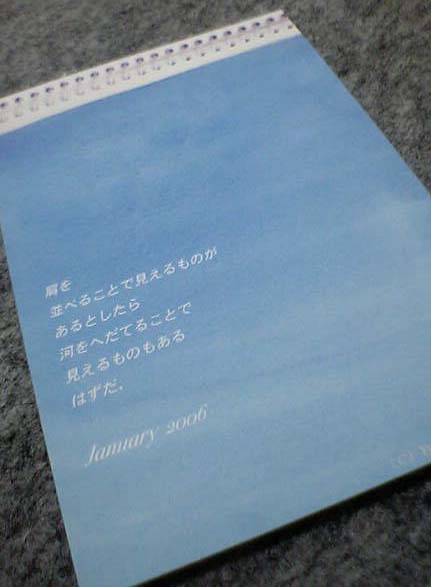 肩を
並べることで見えるものが
あるとしたら
河をへだてることで
見えるものもある
はずだ.
January 2006
(C)